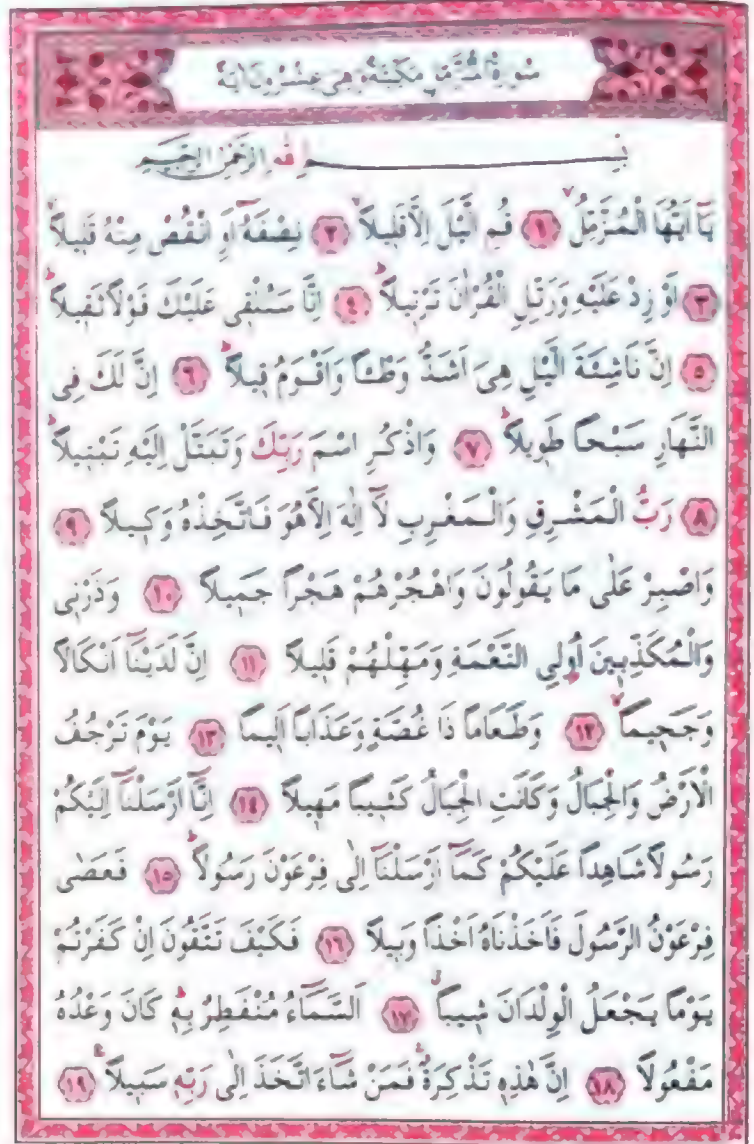 سُورَةُ الْمُزَّمِّلِ مَكِّيَّةٌ وَهِىَ عِشْرُونَ اٰيَةً
بِسْمِ اللّٰهِ الرَّحْمٰنِ الرَّحِيمِ
يَٓا اَيُّهَا الْمُزَّمِّلُۙ ﴿١﴾ قُمِ الَّيْلَ اِلَّا قَلِيلاًۙ ﴿٢﴾ نِصْفَهُٓ اَوِ انْقُصْ مِنْهُ قَلِيلاًۙ
﴿٣﴾ اَوْ زِدْ عَلَيْهِ وَرَتِّلِ الْقُرْاٰنَ تَرْتِيلاًۜ ﴿٤﴾ اِنَّا سَنُلْقِى عَلَيْكَ قَوْلاً ثَقِيلاًۜ
﴿٥﴾ اِنَّ نَاشِئَةَ الَّيْلِ هِىَ اَشَدُّ وَطْـٔاً وَاَقْوَمُ قِيلاًۜ ﴿٦﴾ اِنَّ لَكَ فِى
النَّهَارِ سَبْحاً طَوِيلاًۜ ﴿٧﴾ وَاذْكُرِ اسْمَ رَبِّكَ وَتَبَتَّلْ اِلَيْهِ تَبْتِيلاًۜ
﴿٨﴾ رَبُّ الْمَشْرِقِ وَالْمَغْرِبِ لَٓا اِلٰهَ اِلَّا هُوَ فَاتَّخِذْهُ وَكِيلاً ﴿٩﴾
وَاصْبِرْ عَلٰى مَا يَقُولُونَ وَاهْجُرْهُمْ هَجْراً جَمِيلاً ﴿١٠﴾ وَذَرْنِى
وَالْمُكَذِّبِينَ اُولِى النَّعْمَةِ وَمَهِّلْهُمْ قَلِيلاً ﴿١١﴾ اِنَّ لَدَيْنَٓا اَنْكَالاً
وَجَحِيماًۙ ﴿١٢﴾ وَطَعَاماً ذَا غُصَّةٍ وَعَذَاباً اَلِيماً ﴿١٣﴾ يَوْمَ تَرْجُفُ
الْاَرْضُ وَالْجِبَالُ وَكَانَتِ الْجِبَالُ كَثِيباً مَهِيلاً ﴿١٤﴾ اِنَّٓا اَرْسَلْنَٓا اِلَيْكُمْ
رَسُولاً شَاهِداً عَلَيْكُمْ كَمَٓا اَرْسَلْنَٓا اِلٰى فِرْعَوْنَ رَسُولاًۜ ﴿١٥﴾ فَعَصٰى
فِرْعَوْنُ الرَّسُولَ فَاَخَذْنَاهُ اَخْذاً وَبِيلاً ﴿١٦﴾ فَكَيْفَ تَتَّقُونَ اِنْ كَفَرْتُمْ
يَوْماً يَجْعَلُ الْوِلْدَانَ شِيباًۗ ﴿١٧﴾ اَلسَّمَٓاءُ مُنْفَطِرٌ بِهِۜ كَانَ وَعْدُهُ
مَفْعُولاً ﴿١٨﴾ اِنَّ هٰذِهِ تَذْكِرَةٌۚ فَمَنْ شَٓاءَ اتَّخَذَ اِلٰى رَبِّهِ سَبِيلاً۟ ﴿١٩﴾